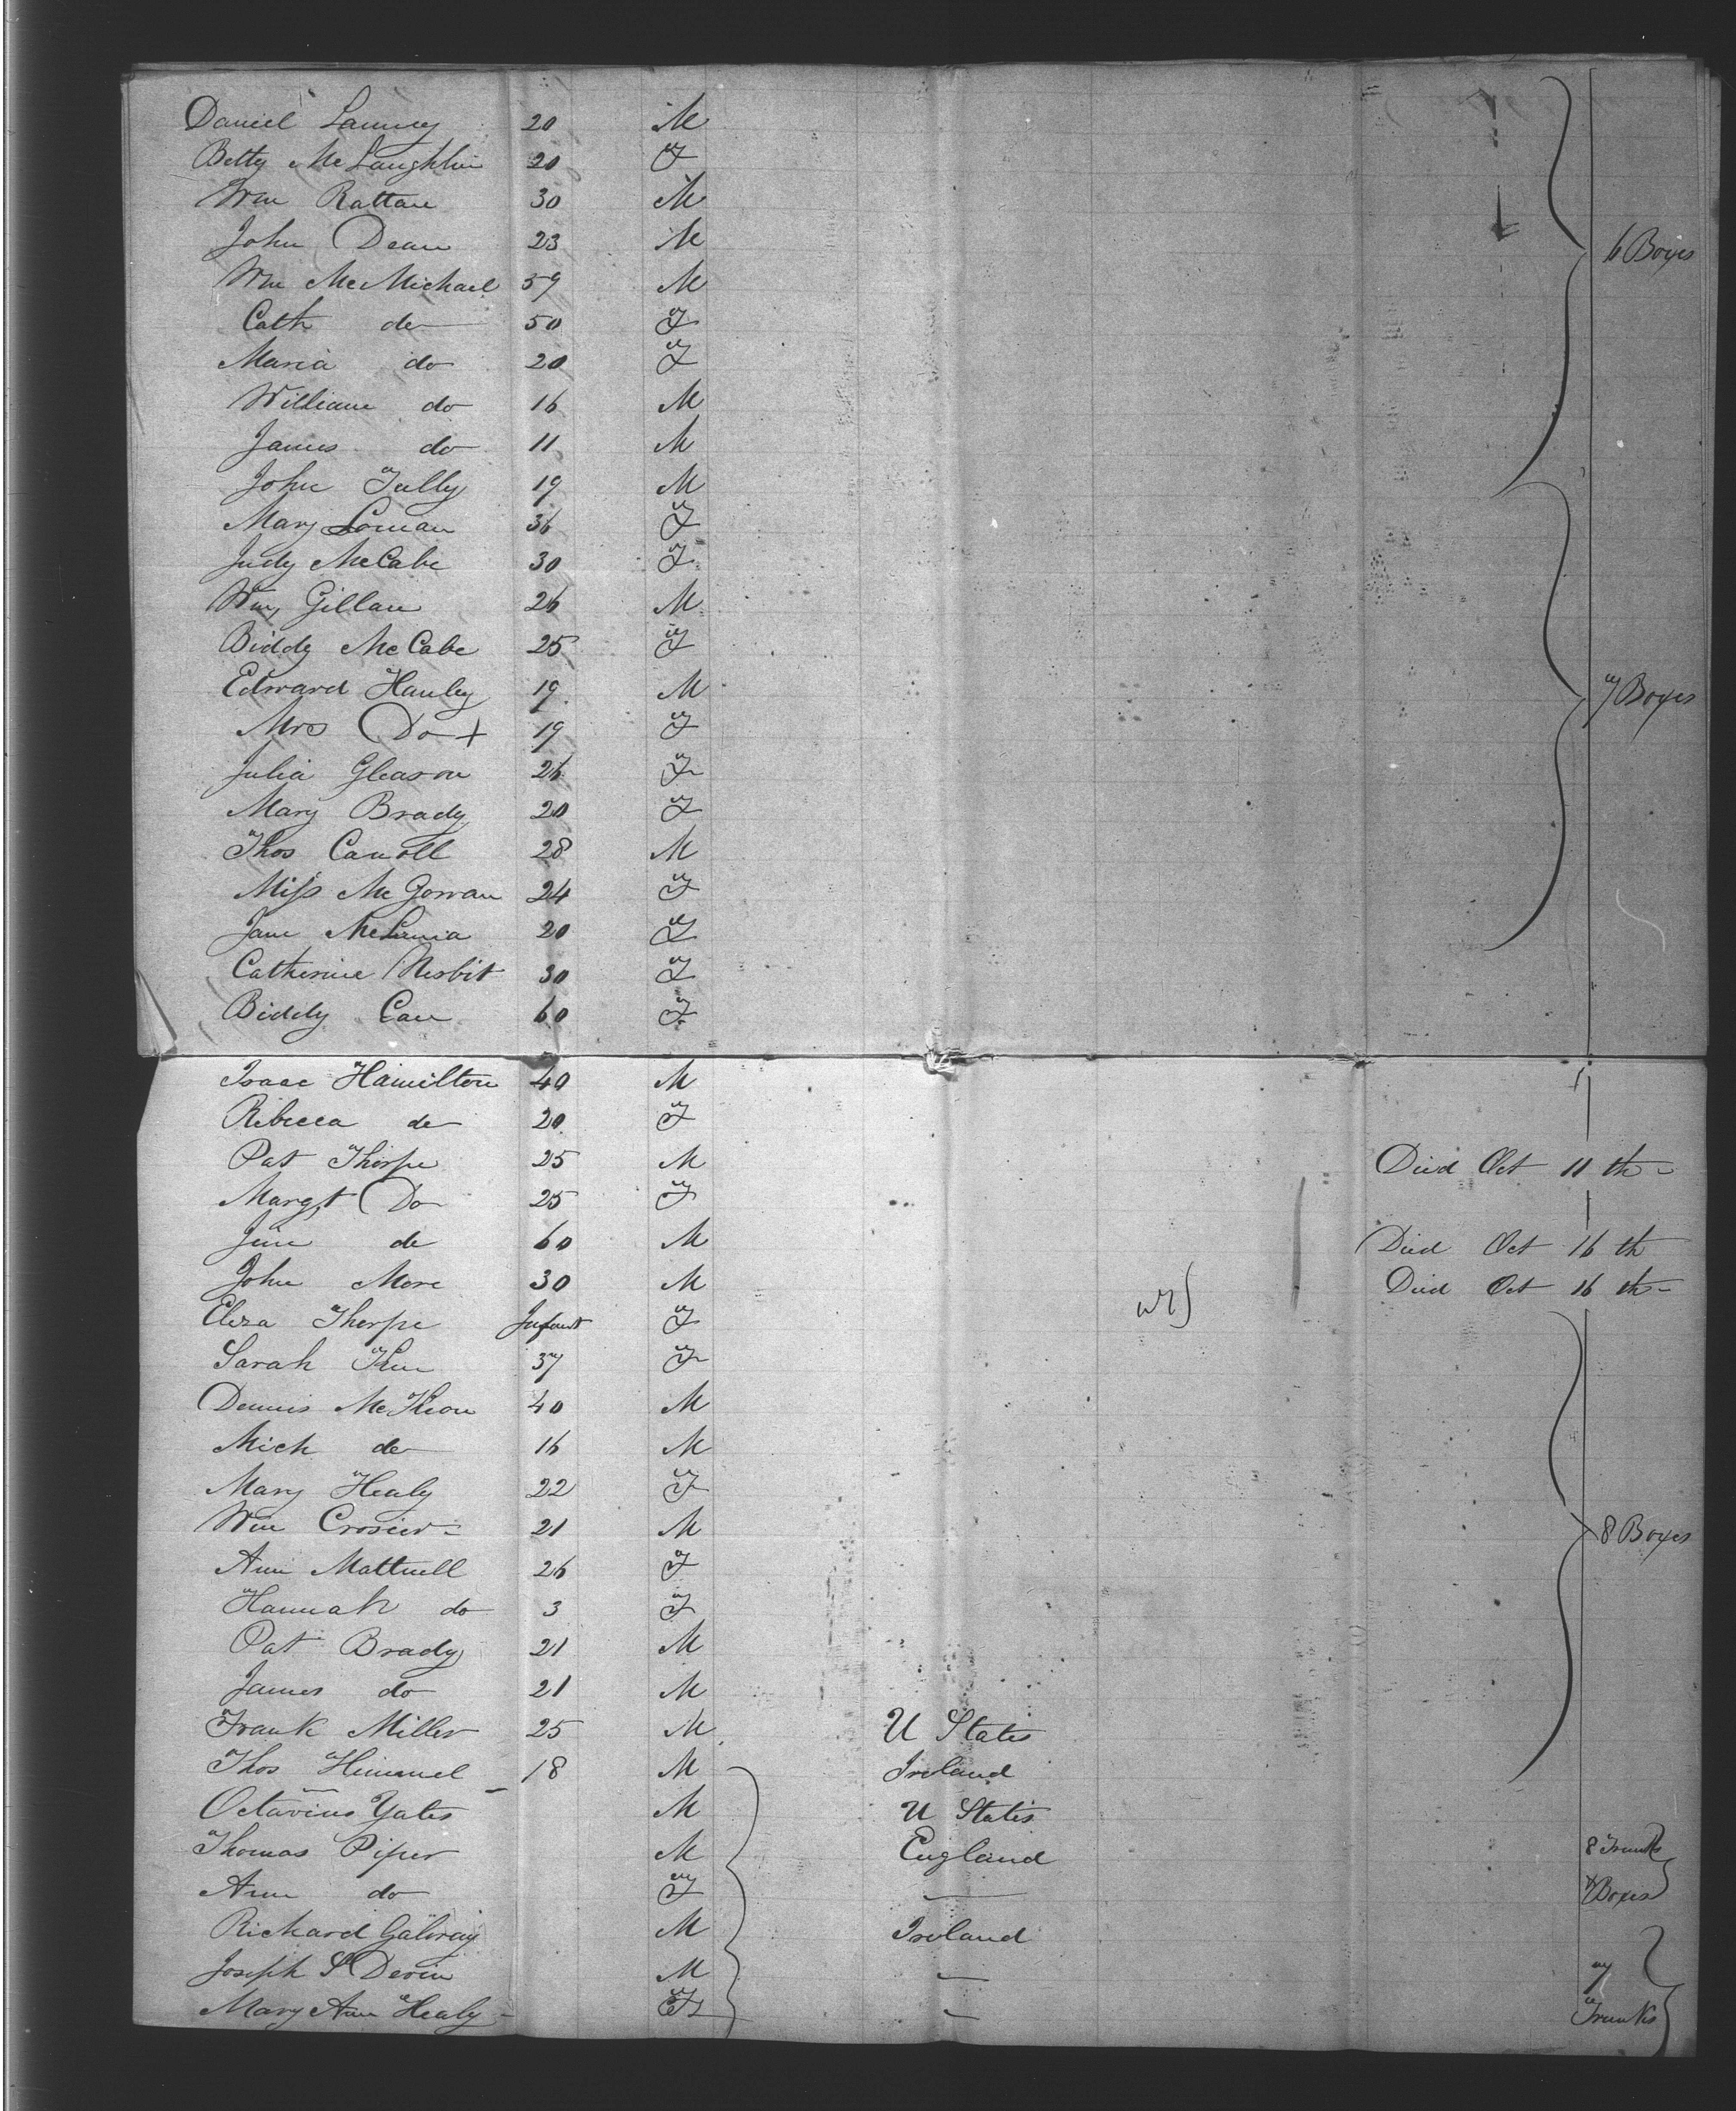 Daniel Lanney 20 M
Betty McLaughlin 20 F
Wm Rattan 30 M
John Dean 23 M 6 Boxes
Wm McMichael 59 M
Cath do 50 F
Maria do 20 F
William do 16 M
James do 11 M
John Tully 19 M
Mary Loman 36 F
Judy McCabe 30 F
Wm Gillan 26 M
Biddy McCabe 25 F
Edward Hanley 19 M 7 Boxes
Mrs Do + 19 F
Julia Gleason 26 F
Mary Brady 20 F
Thos Carroll 28 M
Miss McGowan 24 F
Jane 20 F
Catherine Nesbit 30 F
Biddy Carr 60 F
Isaac Hamilton 40 M
Ribecca do 20 F
Pat Thorpe 25 M Died Oct 11 th
Margt Do 25 F
Jim do 60 M Died Oct 16 th
John More 30 M Died Oct 16 th
Eliza Thorpe Infant F
Sarah 37 F
Dennis McKeon 40 M
Mich do 16 M
Mary Healy 22 F
Wm Crosier 21 M 8 Boxes
Ann Mattuell 26 F
Hannah do 3 F
Pat Brady 21 M
James do 21 M
Frank Miller 25 M U States
Thos 18 M Ireland
Octavius Yates M U States
Thomas Piper M England 8 Trunks
Ann do F — Boxes
Richard Galway M Ireland
Joseph S Devin M — 7
Mary Ann Healy F — Trunks